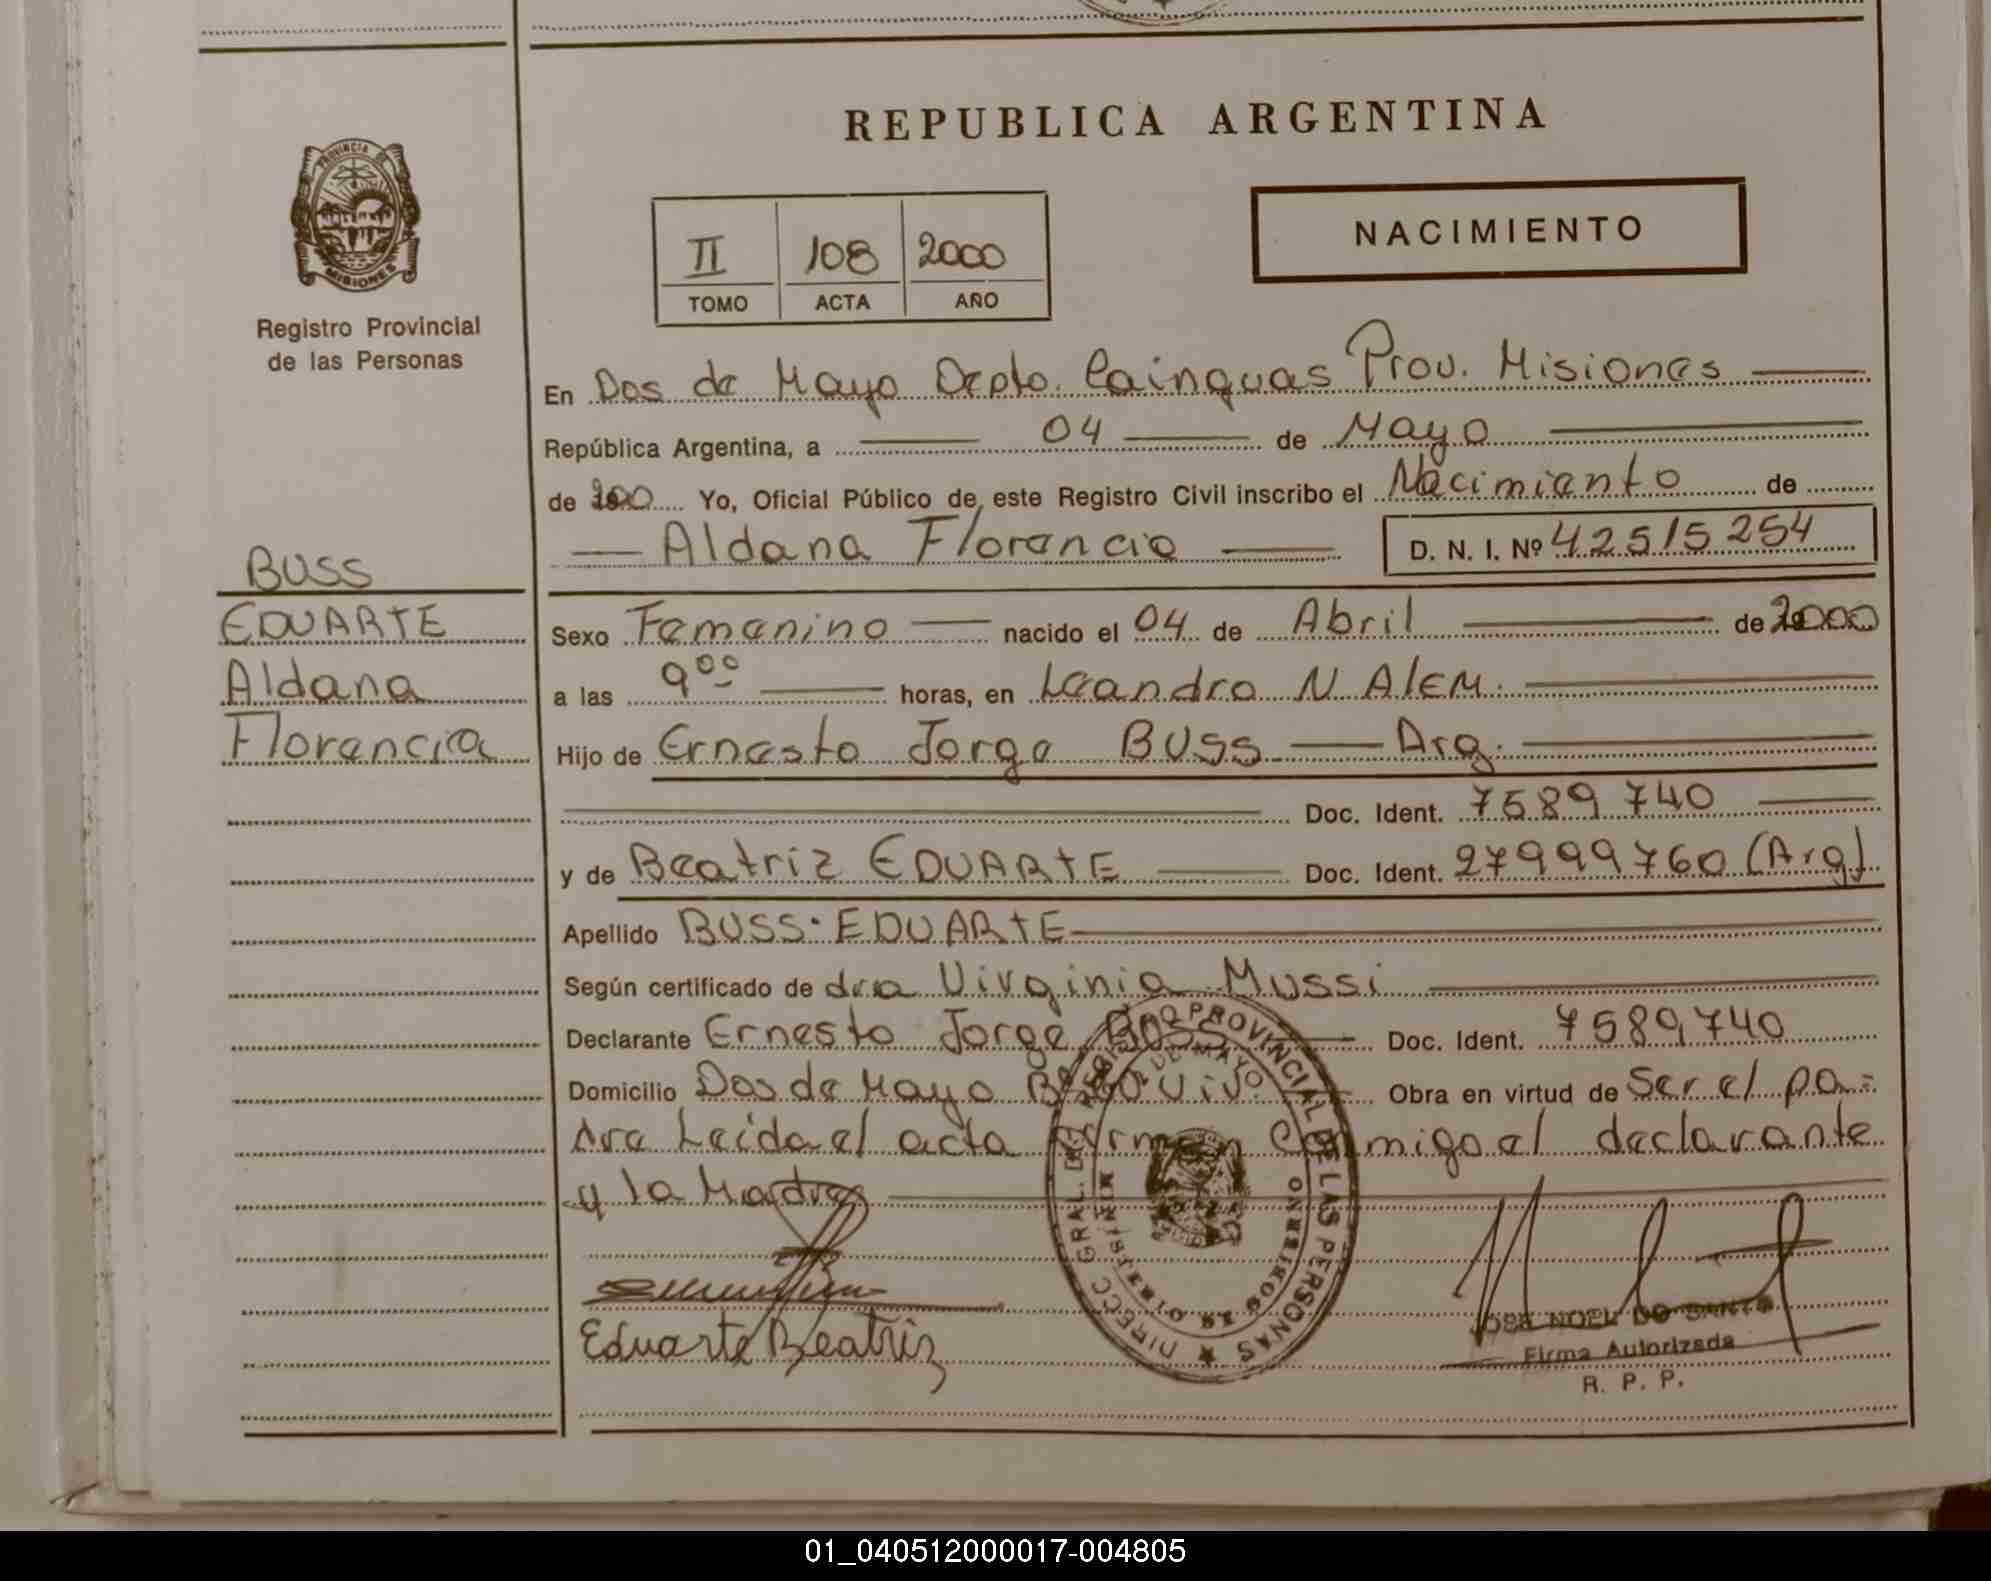 REPUBLICA ARGENTINA
PROVINCIA DE
MISIONES
Registro Provincial
de las Personas
II 108 2000
TOMO ACTA AÑO
NACIMIENTO
En Dos de Mayo Depto. Cainguas Prov. Misiones
República Argentina, a 04 de Mayo
de 200 Yo, Oficial Público de este Registro Civil inscribo el Nacimiento de
Aldana Florencia D. N. I. Nº 42515254
BUSS
EDUARTE
Aldana
Florencia
Sexo Femenino nacido el 04 de Abril de 2000
a las 9⁰⁰ horas, en Leandro N Alem.
Hijo de Ernesto Jorge BUSS Arg.
Doc. Ident. 7589740
y de Beatriz EDUARTE Doc. Ident. 27999760 (Arg)
Apellido BUSS·EDUARTE
Según certificado de dra Virginia Mussi
Declarante Ernesto Jorge Buss Doc. Ident. 7589740
Domicilio Dos de Mayo Bº 60 Viv. Obra en virtud de Ser el pa=
dre Leida el acta Firman Conmigo el declarante
y la Madre
DIRECC. GRAL. DEL REGISTRO PROVINCIAL DE LAS PERSONAS
2 DE MAYO
MINISTERIO DE GOBIERNO
Eduarte Beatriz
JOSE NOEL DO SANTO
Firma Autorizada
R. P. P.
01_040512000017-004805